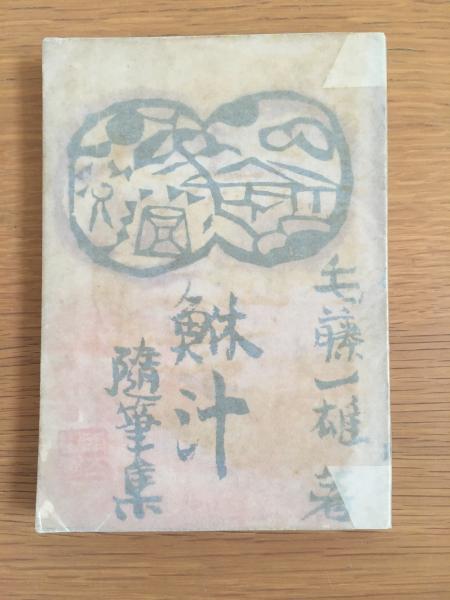 毛藤一雄 著
鮴汁
隨筆集